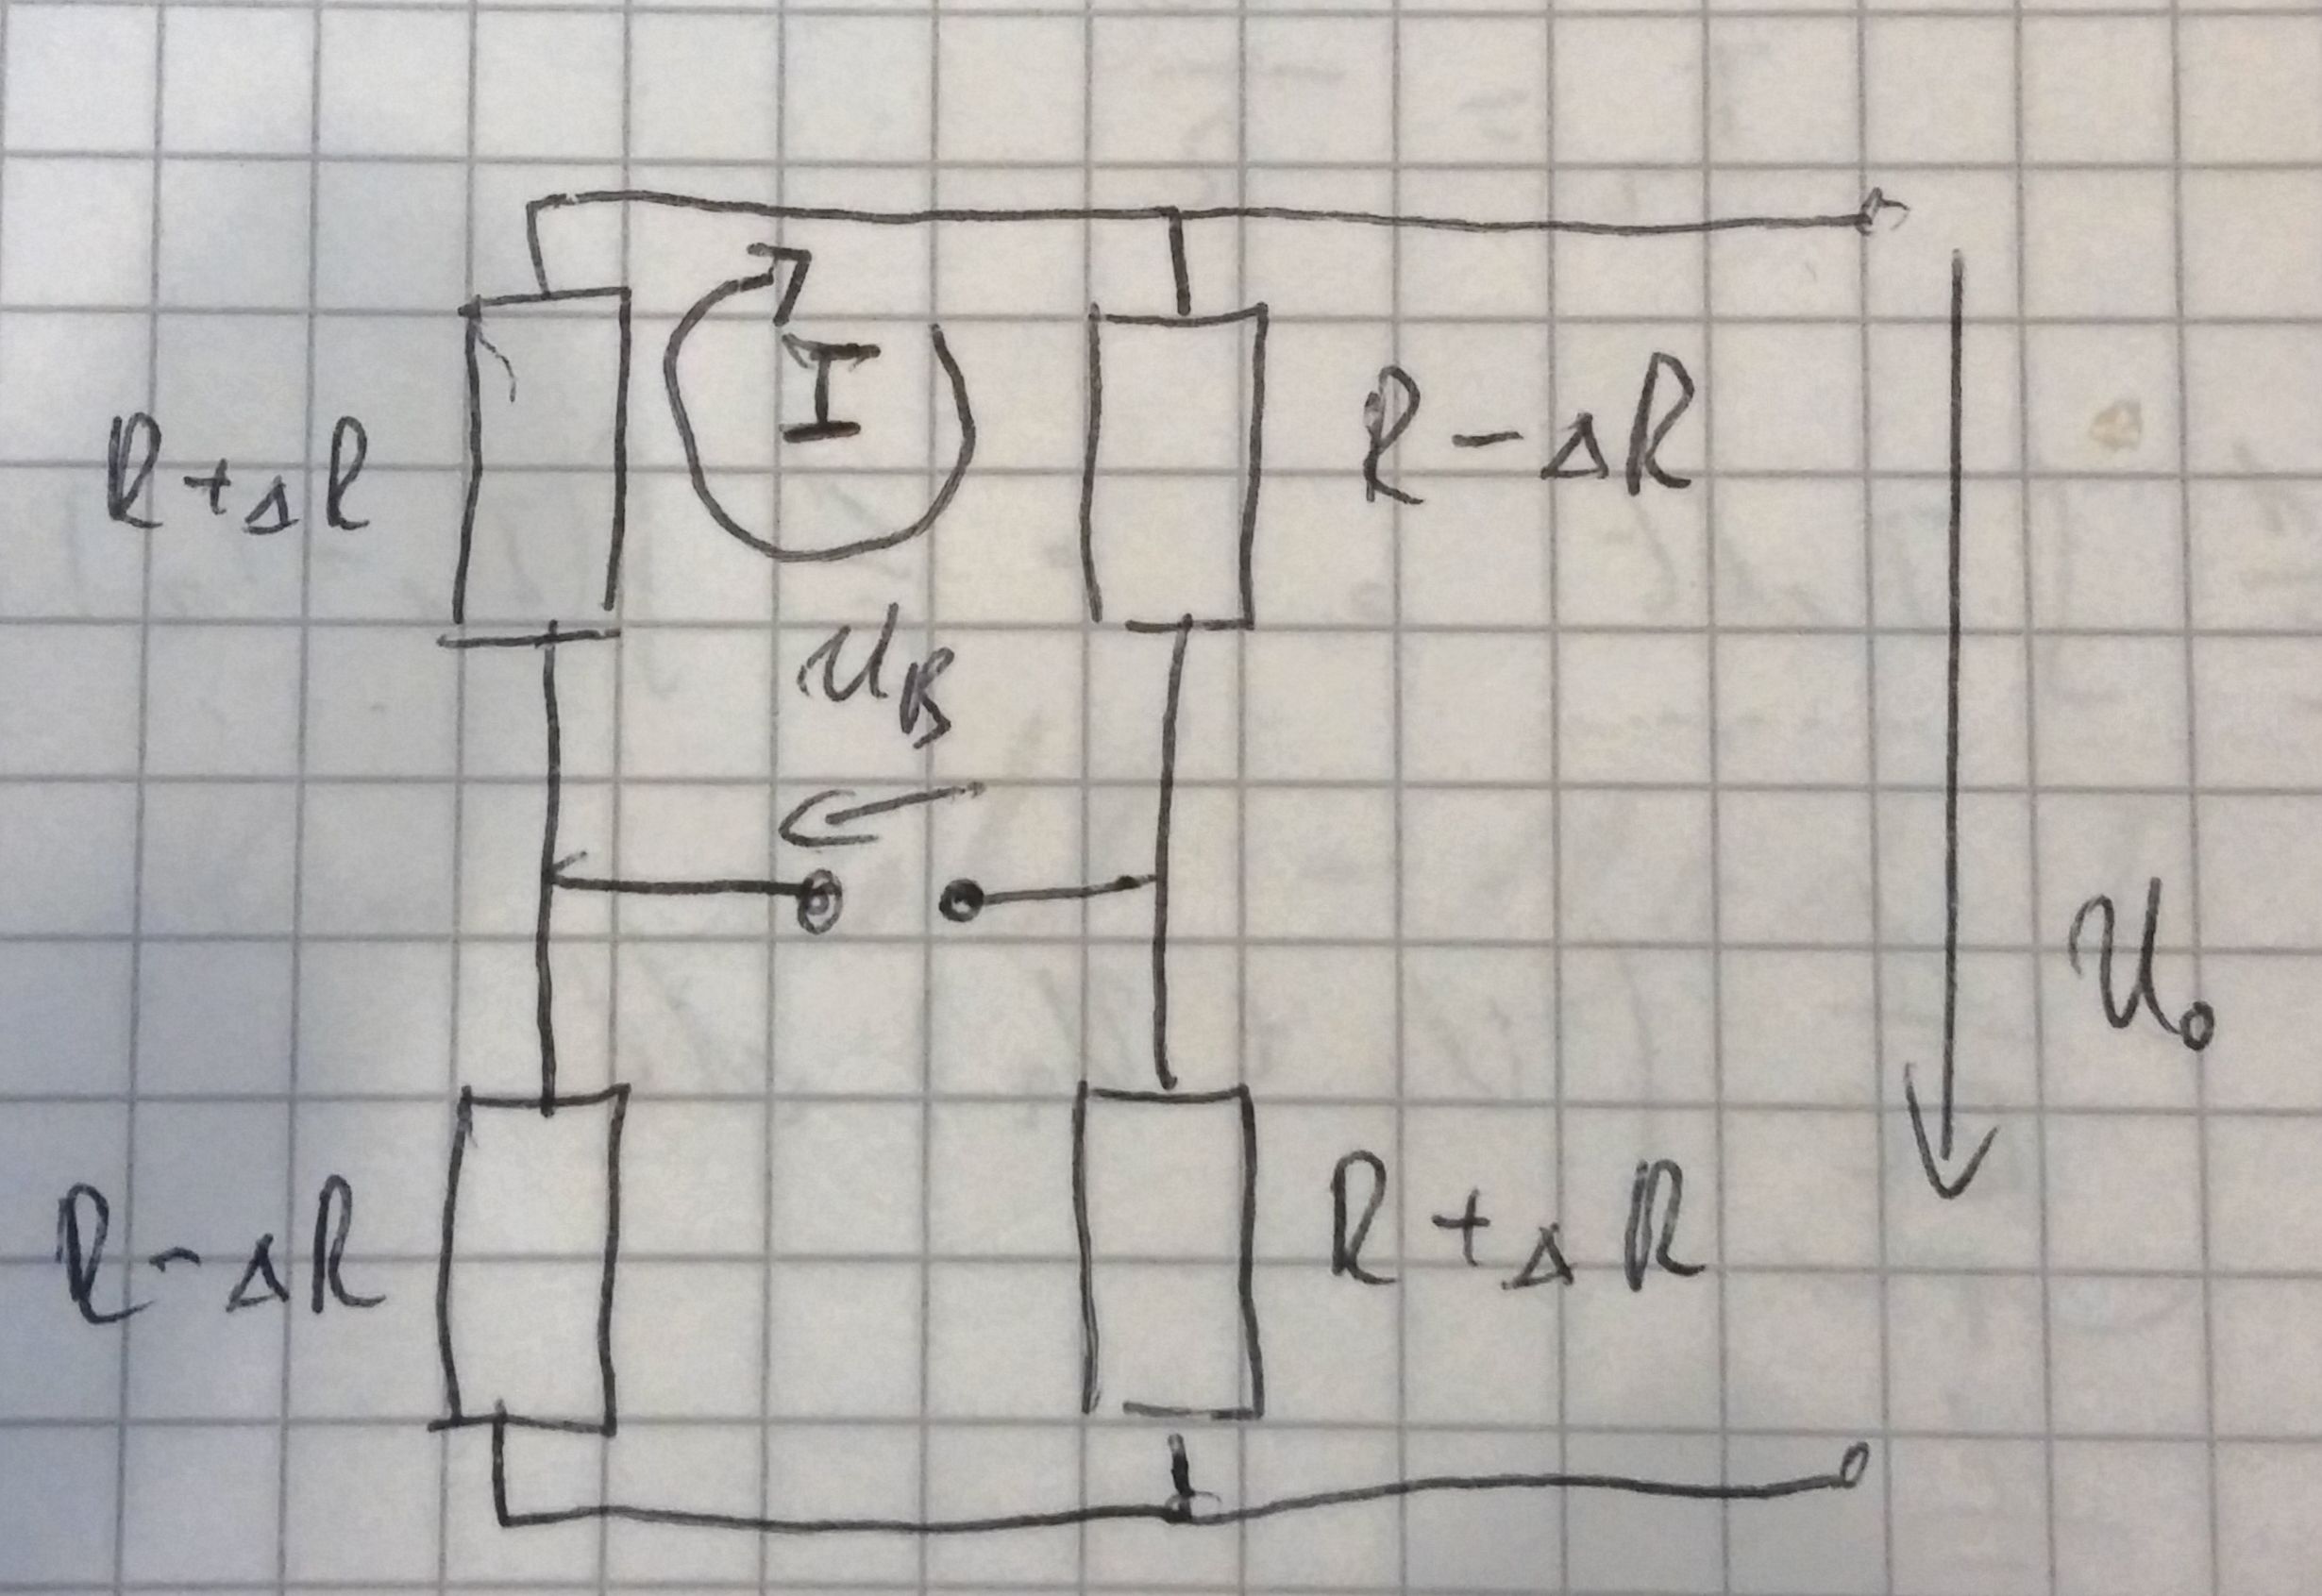 I
R + ΔR
R - ΔR
U_B
U_0
R - ΔR
R + ΔR